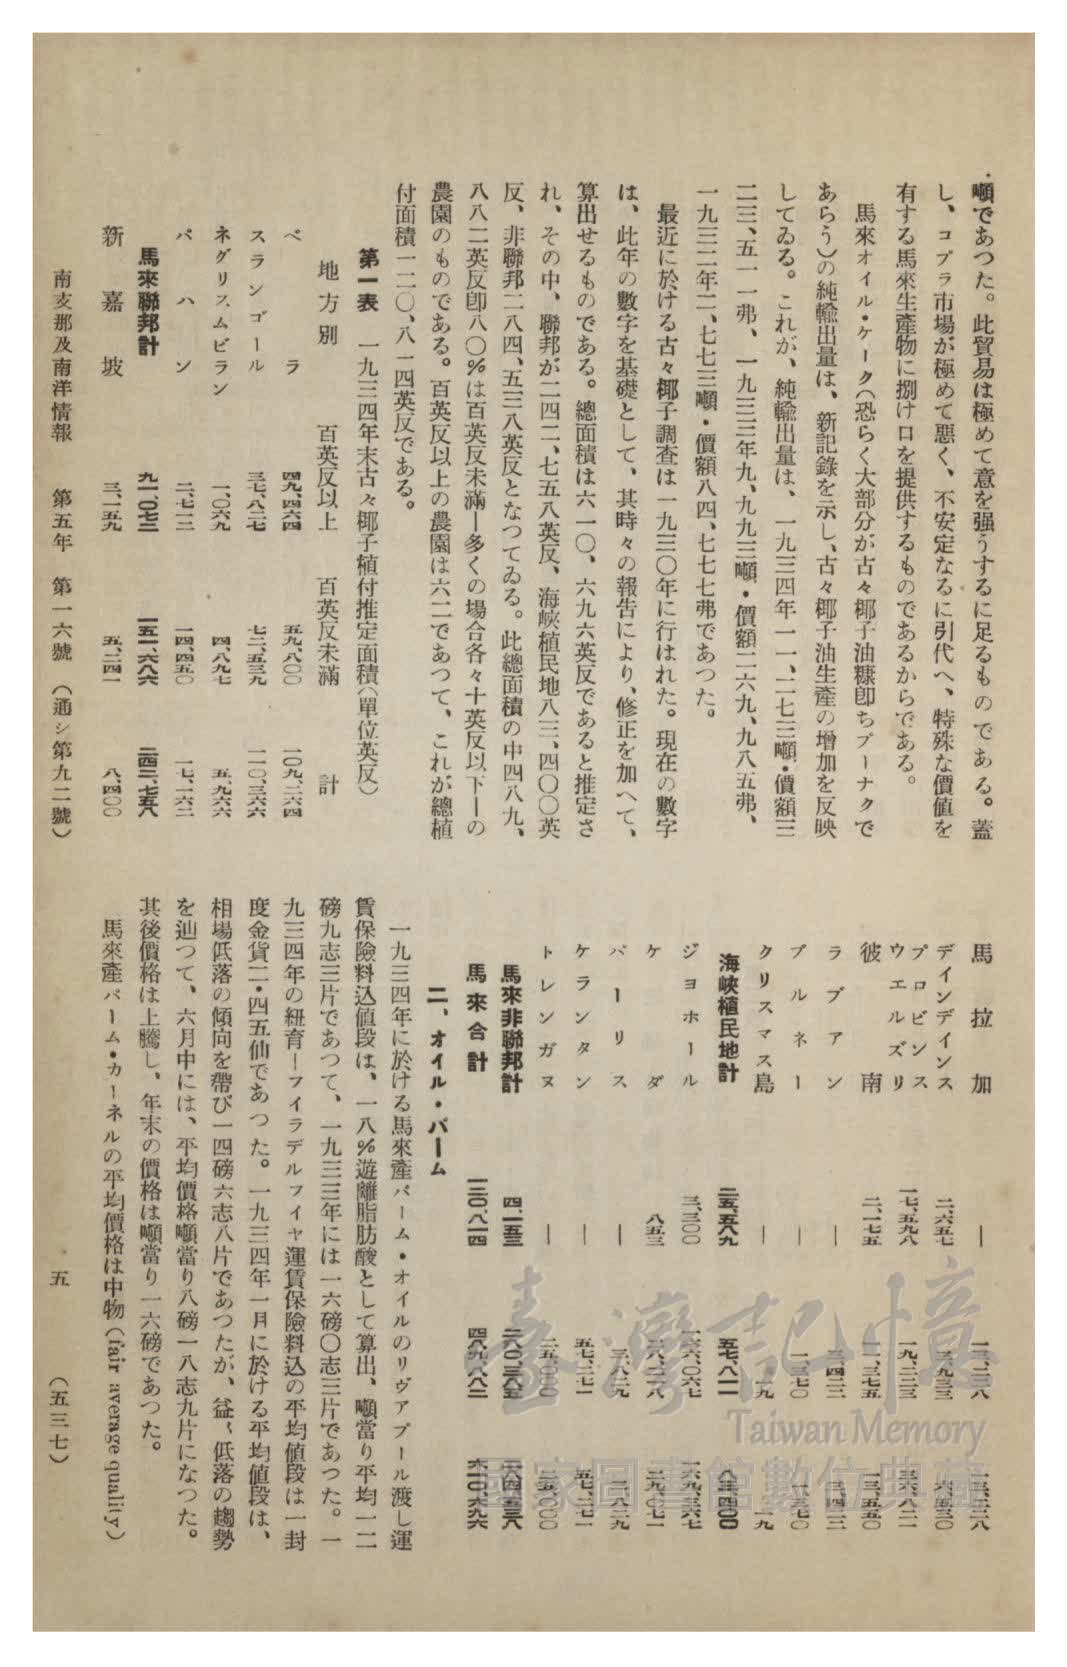 噸であつた。此貿易は極めて意を强うするに足るものである。蓋
し、コプラ市場が極めて惡く、不安定なるに引代へ、特殊な價値を
有する馬來生產物に捌け口を提供するものであるからである。
馬來オイル・ケーク(恐らく大部分が古々椰子油糠卽ちプーナクで
あらう)の純輸出量は、新記錄を示し、古々椰子油生產の增加を反映
してゐる。これが、純輸出量は、一九三四年一一、二七三噸・價額三
二三、五一一弗、一九三三年九、九九三噸・價額二六九、九八五弗、
一九三二年二、七七三噸・價額八四、七七七弗であつた。
最近に於ける古々椰子調査は一九三〇年に行はれた。現在の數字
は、此年の數字を基礎として、其時々の報吿により、修正を加へて、
算出せるものである。總面積は六一〇、六九六英反であると推定さ
れ、その中、聯邦が二四二、七五八英反、海峽植民地八三、四〇〇英
反、非聯邦二八四、五三八英反となつてゐる。此總面積の中四八九、
八八二英反卽八〇%は百英反未滿ー多くの場合各々十英反以下ーの
農園のものである。百英反以上の農園は六二であつて、これが總植
付面積一二〇、八一四英反である。
第一表 一九三四年末古々椰子植付推定面積(單位英反)
地方別 百英反以上 百英反未滿 計
ペラ 四九、四六四 五九、八〇〇 一〇九、二六四
スランゴール 三七、八二七 七二、五三九 一一〇、三六六
ネグリスムビラン 一、〇六九 四、八九七 五、九六六
パハン 二、七一二 一四、四五〇 一七、一六二
馬來聯邦計 九一、〇七二 一五一、六八六 二四二、七五八
新嘉坡 三、一五九 五、二四一 八、四〇〇
馬拉加 ー
デインデインス 二、六五七
プロビンスウエルズリ 一七、五九八
彼南 二、一七五 一一、三七五 一三、五五〇
ラブアン ー
ブルネー ー
クリスマス島 ー
海峽植民地計 二五、五八九 五七、八一一 八三、四〇〇
ジヨホール 三、三〇〇 一六六、〇六七 一六九、三六七
ケダ 八五三 二八、二一八 二九、〇七一
パーリス ー 三、八二九 三、八二九
ケランタン ー 五七、二七一 五七、二七一
トレンガヌ ー 二五、〇〇〇 二五、〇〇〇
馬來非聯邦計 四、一五三 二八〇、三八五 二八四、五三八
馬來合計 一二〇、八一四 四八九、八八二 六一〇、六九六
二、オイル・パーム
一九三四年に於ける馬來產パーム・オイルのリヴアプール渡し運
賃保險料込値段は、一八%遊離脂肪酸として算出、噸當り平均一二
磅九志三片であつて、一九三三年には一六磅〇志三片であつた。一
九三四年の紐育ーフイラデルフイヤ運賃保險料込の平均値段は一封
度金貨二・四五仙であつた。一九三四年一月に於ける平均値段は、
相場低落の傾向を帶び一四磅六志八片であつたが、益〻低落の趨勢
を辿つて、六月中には、平均價格噸當り八磅一八志九片になつた。
其後價格は上騰し、年末の價格は噸當り一六磅であつた。
馬來產パーム・カーネルの平均價格は中物(fair average quality)
南支那及南洋情報 第五年 第一六號 (通シ第九二號) 五 (五三七)
臺灣記憶
Taiwan Memory
國家圖書館數位典藏